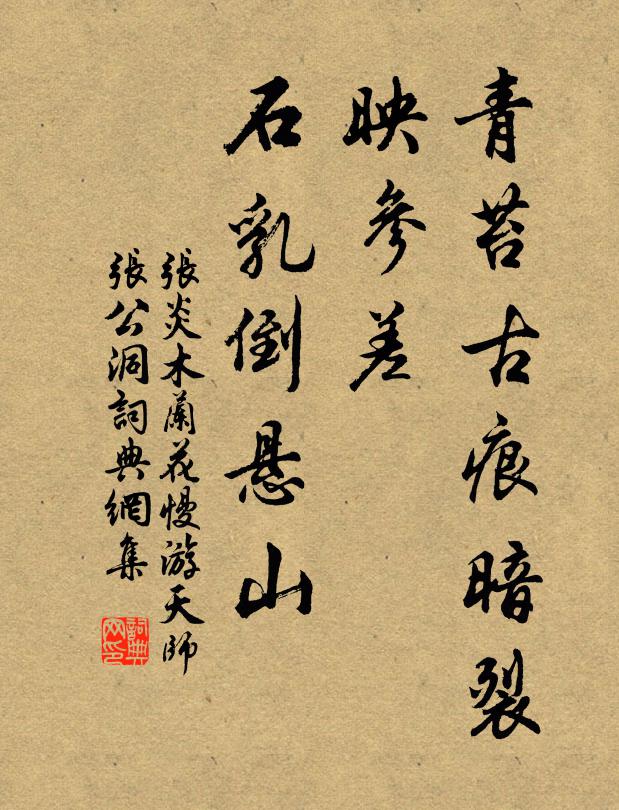 青苔古痕暗裂
映參差
石乳倒悬山
張炎木蘭花慢游天師
張公洞詞典網集
詞典
网印